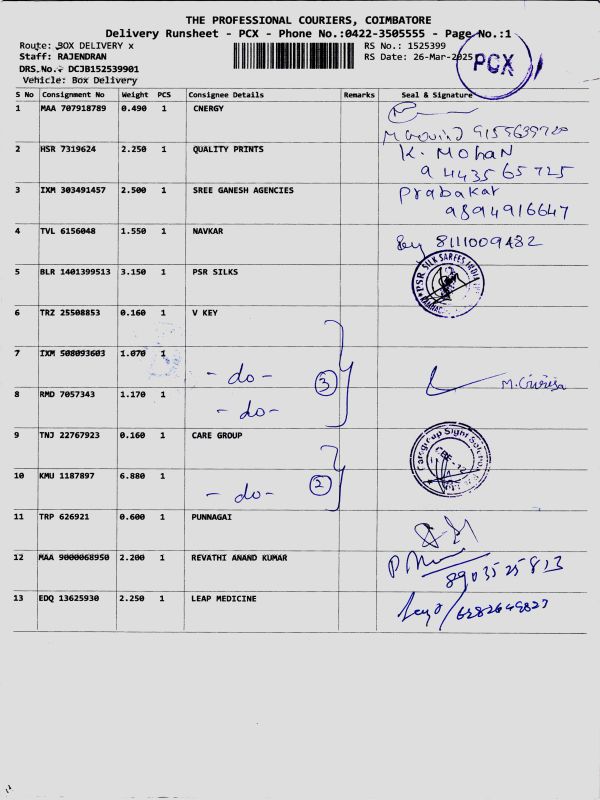 THE PROFESSIONAL COURIERS, COIMBATORE
Delivery Runsheet - PCX - Phone No.:0422-3505555 - Page No.:1
Route: BOX DELIVERY x RS No.: 1525399
Staff: RAJENDRAN RS Date: 26-Mar-2025
DRS.No.: DCJB152539901
Vehicle: Box Delivery
PCX
S No Consignment No Weight PCS Consignee Details Remarks Seal & Signature
1 MAA 707918789 0.490 1 CNERGY
2 HSR 7319624 2.250 1 QUALITY PRINTS K. MOHAN
9443565725
3 IXM 303491457 2.500 1 SREE GANESH AGENCIES Prabakar
9894916647
4 TVL 6156048 1.550 1 NAVKAR 8111009432
5 BLR 1401399513 3.150 1 PSR SILKS PSR SILK SAREES
6 TRZ 25508853 0.160 1 V KEY
7 IXM 508093603 1.070 1 - do - 3
8 RMD 7057343 1.170 1 - do -
9 TNJ 22767923 0.160 1 CARE GROUP
10 KMU 1187897 6.880 1 - do - 2
11 TRP 626921 0.600 1 PUNNAGAI
12 MAA 9000068950 2.200 1 REVATHI ANAND KUMAR
8903525813
13 EDQ 13625930 2.250 1 LEAP MEDICINE